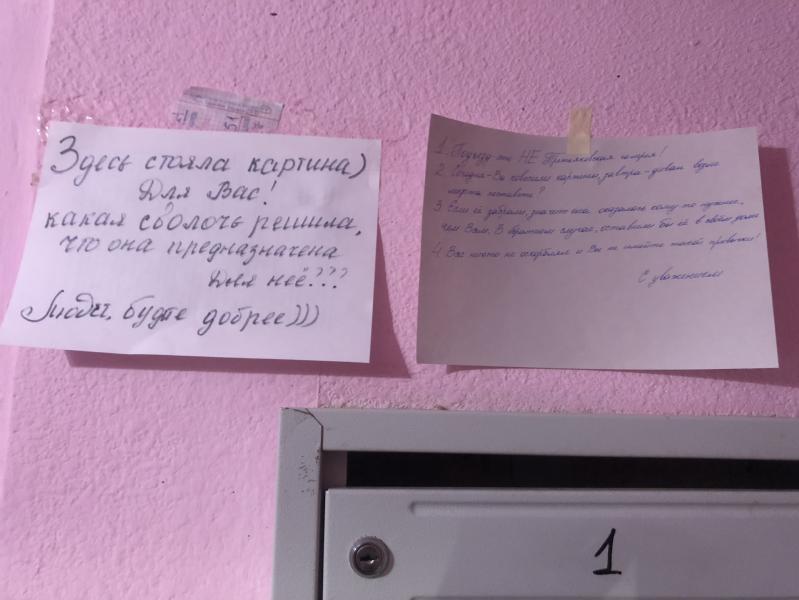 Здесь стояла картина)
Для Вас!
какая сволочь решила,
что она предназначена
Для неё???
Люди, будте добрее)))
1. Подъезд-это НЕ Третьяковская галерея!
2. Сегодня-Вы повесили картину, завтра-диван возле
лифта поставите?
3. Если её забрали, значит она оказалась кому-то нужнее,
чем Вам. В обратном случае, оставили бы её в своём доме
4. Вас никто не оскорблял и Вы не имейте такой привычки!
С уважением
1